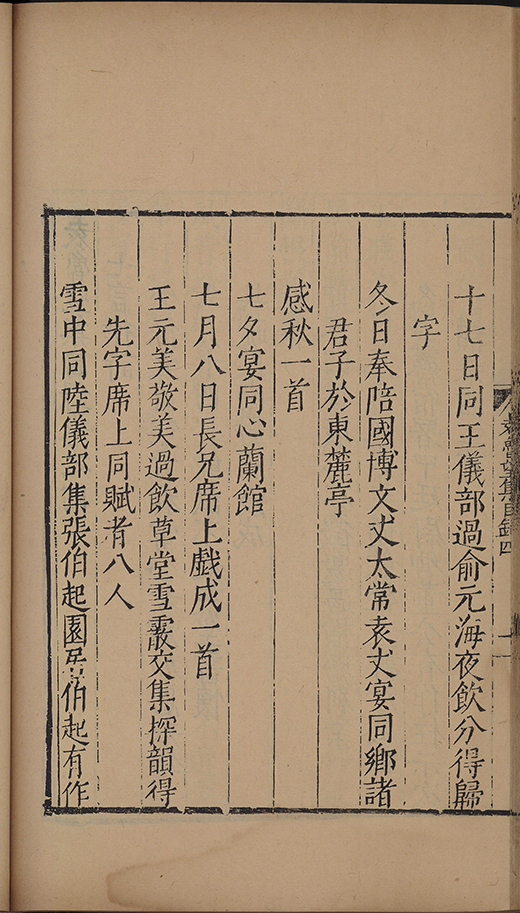 十七日同王儀部過俞元海夜飲分得歸
字
冬日奉陪國博文丈太常袁丈宴同鄉諸
君子於東麓亭
感秋一首
七夕宴同心蘭館
七月八日長兄席上戲成一首
王元美敬美過飲草堂雪霰交集探韻得
先字席上同賦者八人
雪中同陸儀部集張伯起園居伯起有作